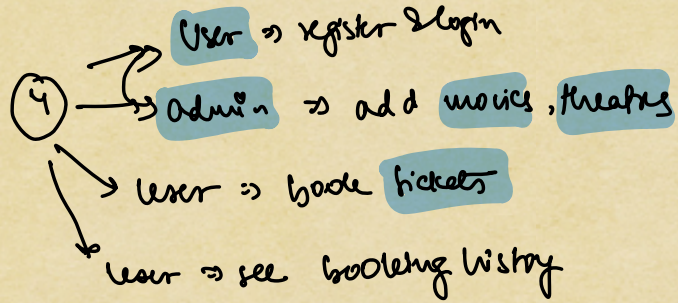 User => register & login
4
admin => add movies, theatres
User => book tickets
User => see booking history